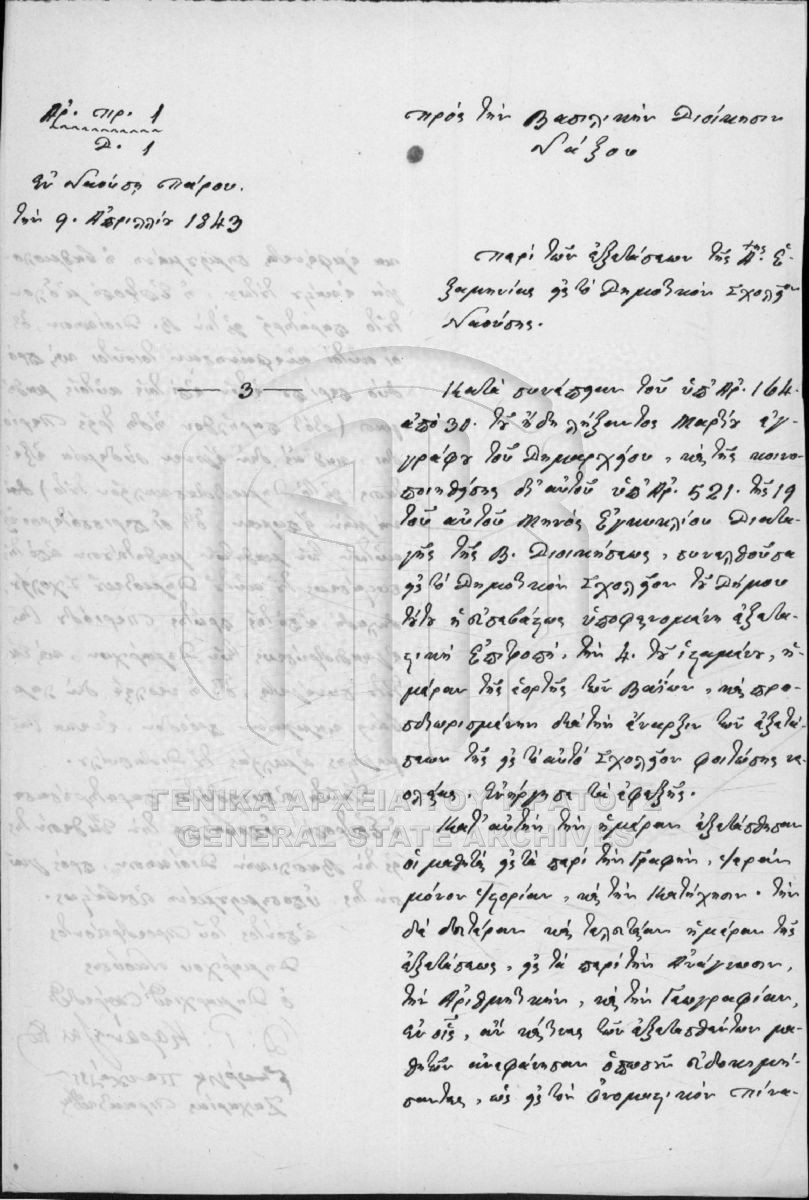 Ἀρ. πρ. 1
Δ. 1
Ἐν Ναούσῃ Πάρου.
τὴν 9. Ἀπριλλίου 1843
Πρὸς τὴν Βασιλικὴν Διοίκησιν
Νάξου
Περὶ τῶν ἐξετάσεων τῆς Α.ης Ἑ-
ξαμηνίας εἰς τὸ Δημοτικὸν Σχολεῖον
Ναούσης.
3
Κατὰ συνέπειαν τοῦ ὑπ' Ἀρ. 164.
ἀπὸ 30. τοῦ ἤδη λήξαντος Μαρτίου ἐγ-
γράφου τοῦ Δημαρχείου, καὶ τῆς κοινο-
ποιηθείσης δι' αὐτοῦ ὑπ' Ἀρ. 521. τῆς 19
τοῦ αὐτοῦ Μηνὸς Ἐγκυκλίου Διατα-
γῆς τῆς Β. Διοικήσεως, συνελθοῦσα
εἰς τὸ Δημοτικὸν Σχολεῖον τοῦ Δήμου
τούτου ἡ εὐσεβάστως ὑποφαινομένη ἐξετα-
στικὴ Ἐπιτροπὴ, τὴν 4. τοῦ ἱσταμένου, ἡ-
μέραν τῆς ἑορτῆς τῶν Βαΐων, καὶ προσ-
διωρισμένην διὰ τὴν ἔναρξιν τῶν ἐξετά-
σεων τῆς εἰς τὸ αὐτὸ Σχολεῖον φοιτώσης νε-
ολαίας. Ἐνήργησε τὰ ἐφεξῆς.
Κατ' αὐτὴν τὴν ἡμέραν ἐξετάσθησαν
οἱ μαθηταὶ εἰς τὰ περὶ τὴν Γραφὴν, ἱερὰν
μόνον ἱστορίαν, καὶ τὴν Κατήχησιν. τὴν
δὲ δευτέραν καὶ τελευταίαν ἡμέραν τῆς
ἐξετάσεως, εἰς τὰ περὶ τὴν Ἀνάγνωσιν,
τὴν Ἀριθμητικὴν, καὶ τὴν Γεωγραφίαν,
ἐν οἷς, ἂν καί τινες τῶν ἐξετασθέντων μα-
θητῶν ἀνεφάνησαν ὁπωσοῦν εὐδοκιμή-
σαντες, ὡς εἰς τὸν Ὀνομαστικὸν Πίνα-
ΓΕΝΙΚΑ ΑΡΧΕΙΑ ΤΟΥ ΚΡΑΤΟΥΣ
GENERAL STATE ARCHIVES